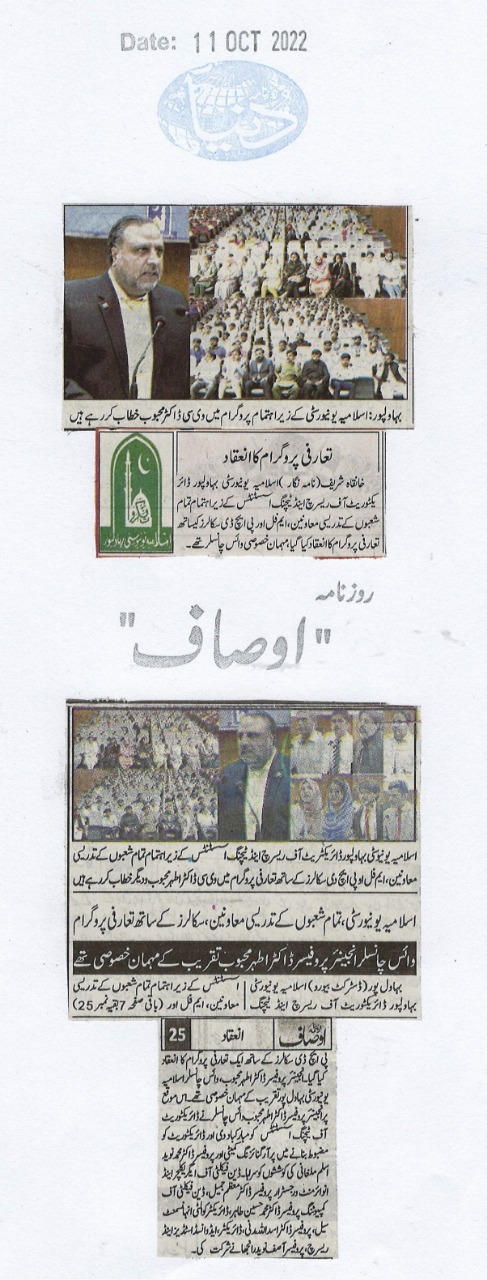 Date: 11 OCT 2022
دنیا
بہاولپور: اسلامیہ یونیورسٹی کے زیر اہتمام پروگرام میں وی سی ڈاکٹر محبوب خطاب کر رہے ہیں
تعارفی پروگرام کا انعقاد
خانقاہ شریف (نامہ نگار) اسلامیہ یونیورسٹی بہاولپور ڈائر
یکٹوریٹ آف ریسرچ اینڈ ٹیچنگ اسسٹنٹس کے زیر اہتمام تمام
شعبوں کے تدریسی معاونین، ایم فل اور پی ایچ ڈی سکالرز کیساتھ
تعارفی پروگرام کا انعقاد کیا گیا، مہمان خصوصی وائس چانسلر تھے۔
اسلامیہ یونیورسٹی بہاولپور
روزنامہ
"اوصاف"
اسلامیہ یونیورسٹی بہاولپور ڈائریکٹریٹ آف ریسرچ اینڈ ٹیچنگ اسسٹنٹس کے زیر اہتمام تمام شعبوں کے تدریسی
معاونین، ایم فل او پی ایچ ڈی سکالرز کے ساتھ تعارفی پروگرام میں وی سی ڈاکٹر اطہر محبوب و دیگر خطاب کر رہے ہیں
اسلامیہ یونیورسٹی، تمام شعبوں کے تدریسی معاونین، سکالرز کے ساتھ تعارفی پروگرام
وائس چانسلر انجینئر پروفیسر ڈاکٹر اطہر محبوب تقریب کے مہمان خصوصی تھے
بہاول پور (ڈسٹرکٹ بیورو) اسلامیہ یونیورسٹی
بہاولپور ڈائریکٹوریٹ آف ریسرچ اینڈ ٹیچنگ
اسسٹنٹس کے زیر اہتمام تمام شعبوں کے تدریسی
معاونین، ایم فل اور (باقی صفحہ 7 بقیہ نمبر 25)
اوصاف انعقاد 25
پی ایچ ڈی سکالرز کے ساتھ ایک تعارفی پروگرام کا انعقاد
کیا گیا۔ انجینئر پروفیسر ڈاکٹر اطہر محبوب، وائس چانسلر اسلامیہ
یونیورسٹی بہاول پور تقریب کے مہمان خصوصی تھے۔ اس موقع
پر انجینئر پروفیسر ڈاکٹر اطہر محبوب وائس چانسلر نے ڈائریکٹوریٹ
آف ٹیچنگ اسسٹنٹس کو مبارکباد دی اور ڈائریکٹوریٹ کو
مضبوط بنانے میں پر آرگنائزنگ کمیٹی اور پروفیسر ڈاکٹر محمد نوید
اسلم ملغانی کی کوششوں کو سراہا۔ ڈین فیکلٹی آف ایگریکلچر اینڈ
انوائرمنٹ و رجسٹرار پروفیسر ڈاکٹر معظم جمیل، ڈین فیکلٹی آف
کمپیوٹنگ پروفیسر ڈاکٹر محمد حسین طاہر، ڈائریکٹر کوالٹی انہانسمنٹ
سیل، پروفیسر ڈاکٹر اسد اللہ مدنی، ڈائریکٹر، ایڈوانسڈ اسٹڈیز اینڈ
ریسرچ، پروفیسر آصف نوید رانجھا نے شرکت کی۔